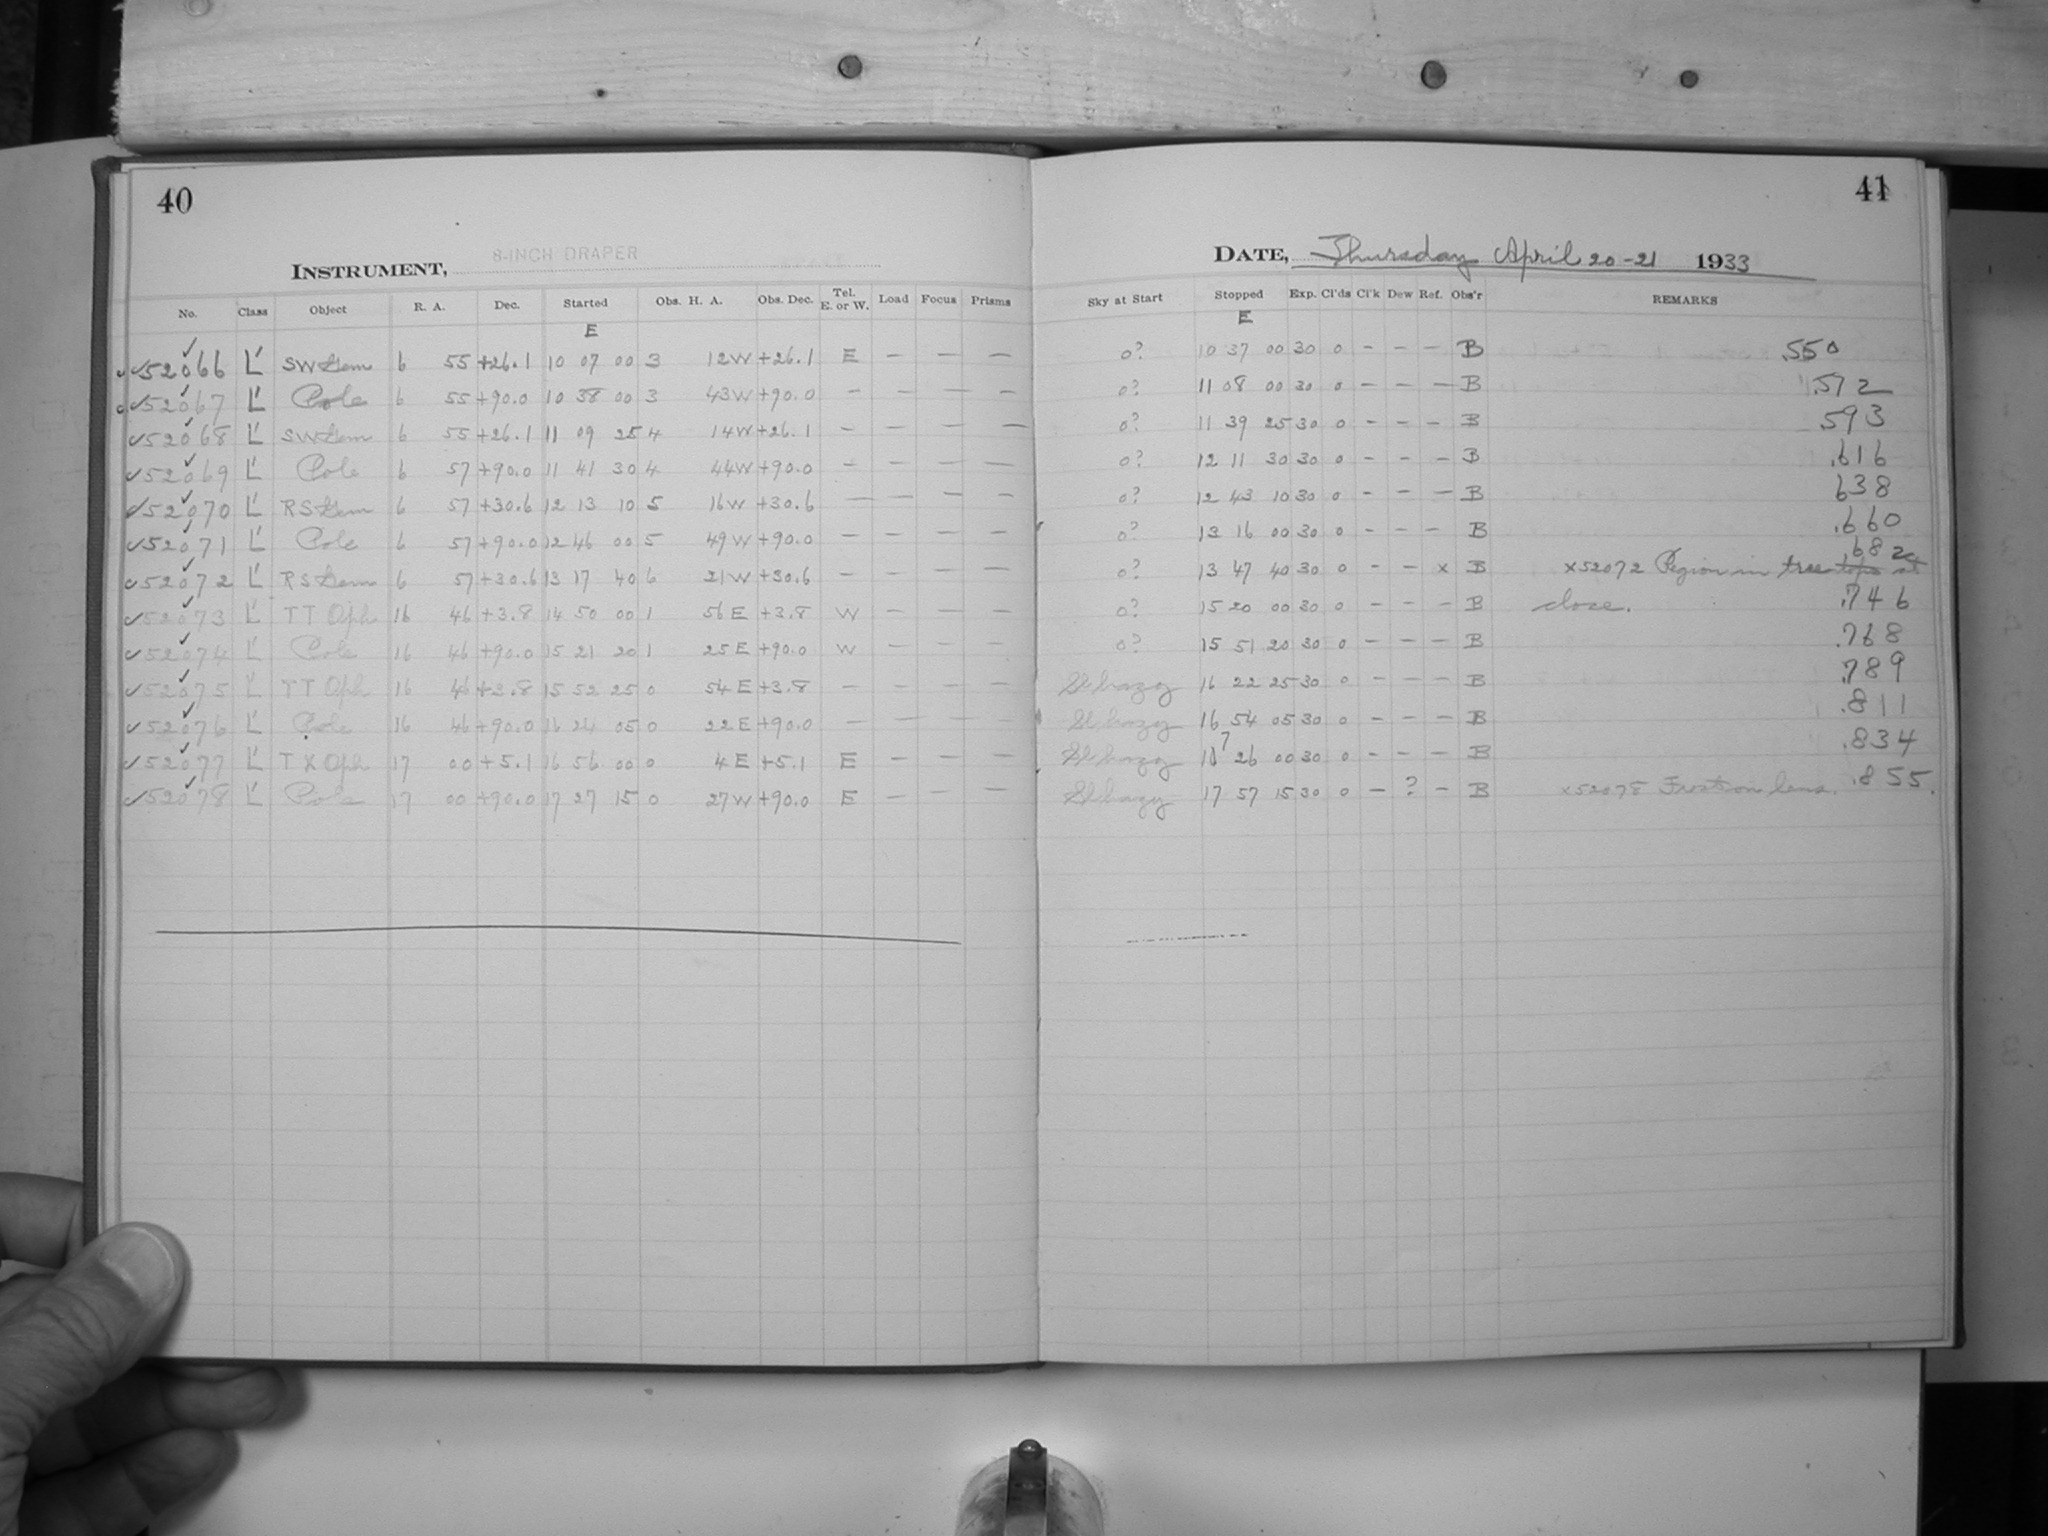 40
INSTRUMENT, 8-INCH DRAPER
No. Class Object R. A. Dec. Started Obs. H. A. Obs. Dec. Tel. E. or W. Load Focus Prisms
E
✓52066 L' SW Gem 6 55 +26.1 10 07 00 3 12 W +26.1 E — — —
✓52067 L' Pole 6 55 +90.0 10 38 00 3 43 W +90.0 — — — —
✓52068 L' SW Gem 6 55 +26.1 11 09 25 4 14 W +26.1 — — — —
✓52069 L' Pole 6 57 +90.0 11 41 30 4 44 W +90.0 — — — —
✓52070 L' RS Gem 6 57 +30.6 12 13 10 5 16 W +30.6 — — — —
✓52071 L' Pole 6 57 +90.0 12 46 00 5 49 W +90.0 — — — —
✓52072 L' RS Gem 6 57 +30.6 13 17 40 6 21 W +30.6 — — — —
✓52073 L' TT Oph 16 46 +3.8 14 50 00 1 56 E +3.8 W — — —
✓52074 L' Pole 16 46 +90.0 15 21 20 1 25 E +90.0 W — — —
✓52075 L' TT Oph 16 46 +3.8 15 52 25 0 54 E +3.8 — — — —
✓52076 L' Pole 16 46 +90.0 16 24 05 0 22 E +90.0 — — — —
✓52077 L' TX Oph 17 00 +5.1 16 56 00 0 4 E +5.1 E — — —
✓52078 L' Pole 17 00 +90.0 17 27 15 0 27 W +90.0 E — — —
41
DATE, Thursday April 20-21 1933
Sky at Start Stopped Exp. Cl'ds Cl'k Dew Ref. Obs'r REMARKS
E
0? 10 37 00 30 0 - - - B .550
0? 11 08 00 30 0 - - - B .572
0? 11 39 25 30 0 - - - B .593
0? 12 11 30 30 0 - - - B .616
0? 12 43 10 30 0 - - - B 638
0? 13 16 00 30 0 - - - B .660
.682
0? 13 47 40 30 0 - - x B x52072 Region in tree tops at
0? 15 20 00 30 0 - - - B close. .746
0? 15 51 20 30 0 - - - B .768
Sl hazy 16 22 25 30 0 - - - B .789
Sl hazy 16 54 05 30 0 - - - B .811
Sl hazy 17 26 00 30 0 - - - B .834
Sl hazy 17 57 15 30 0 - ? - B x52078 Frost on lens. .855.